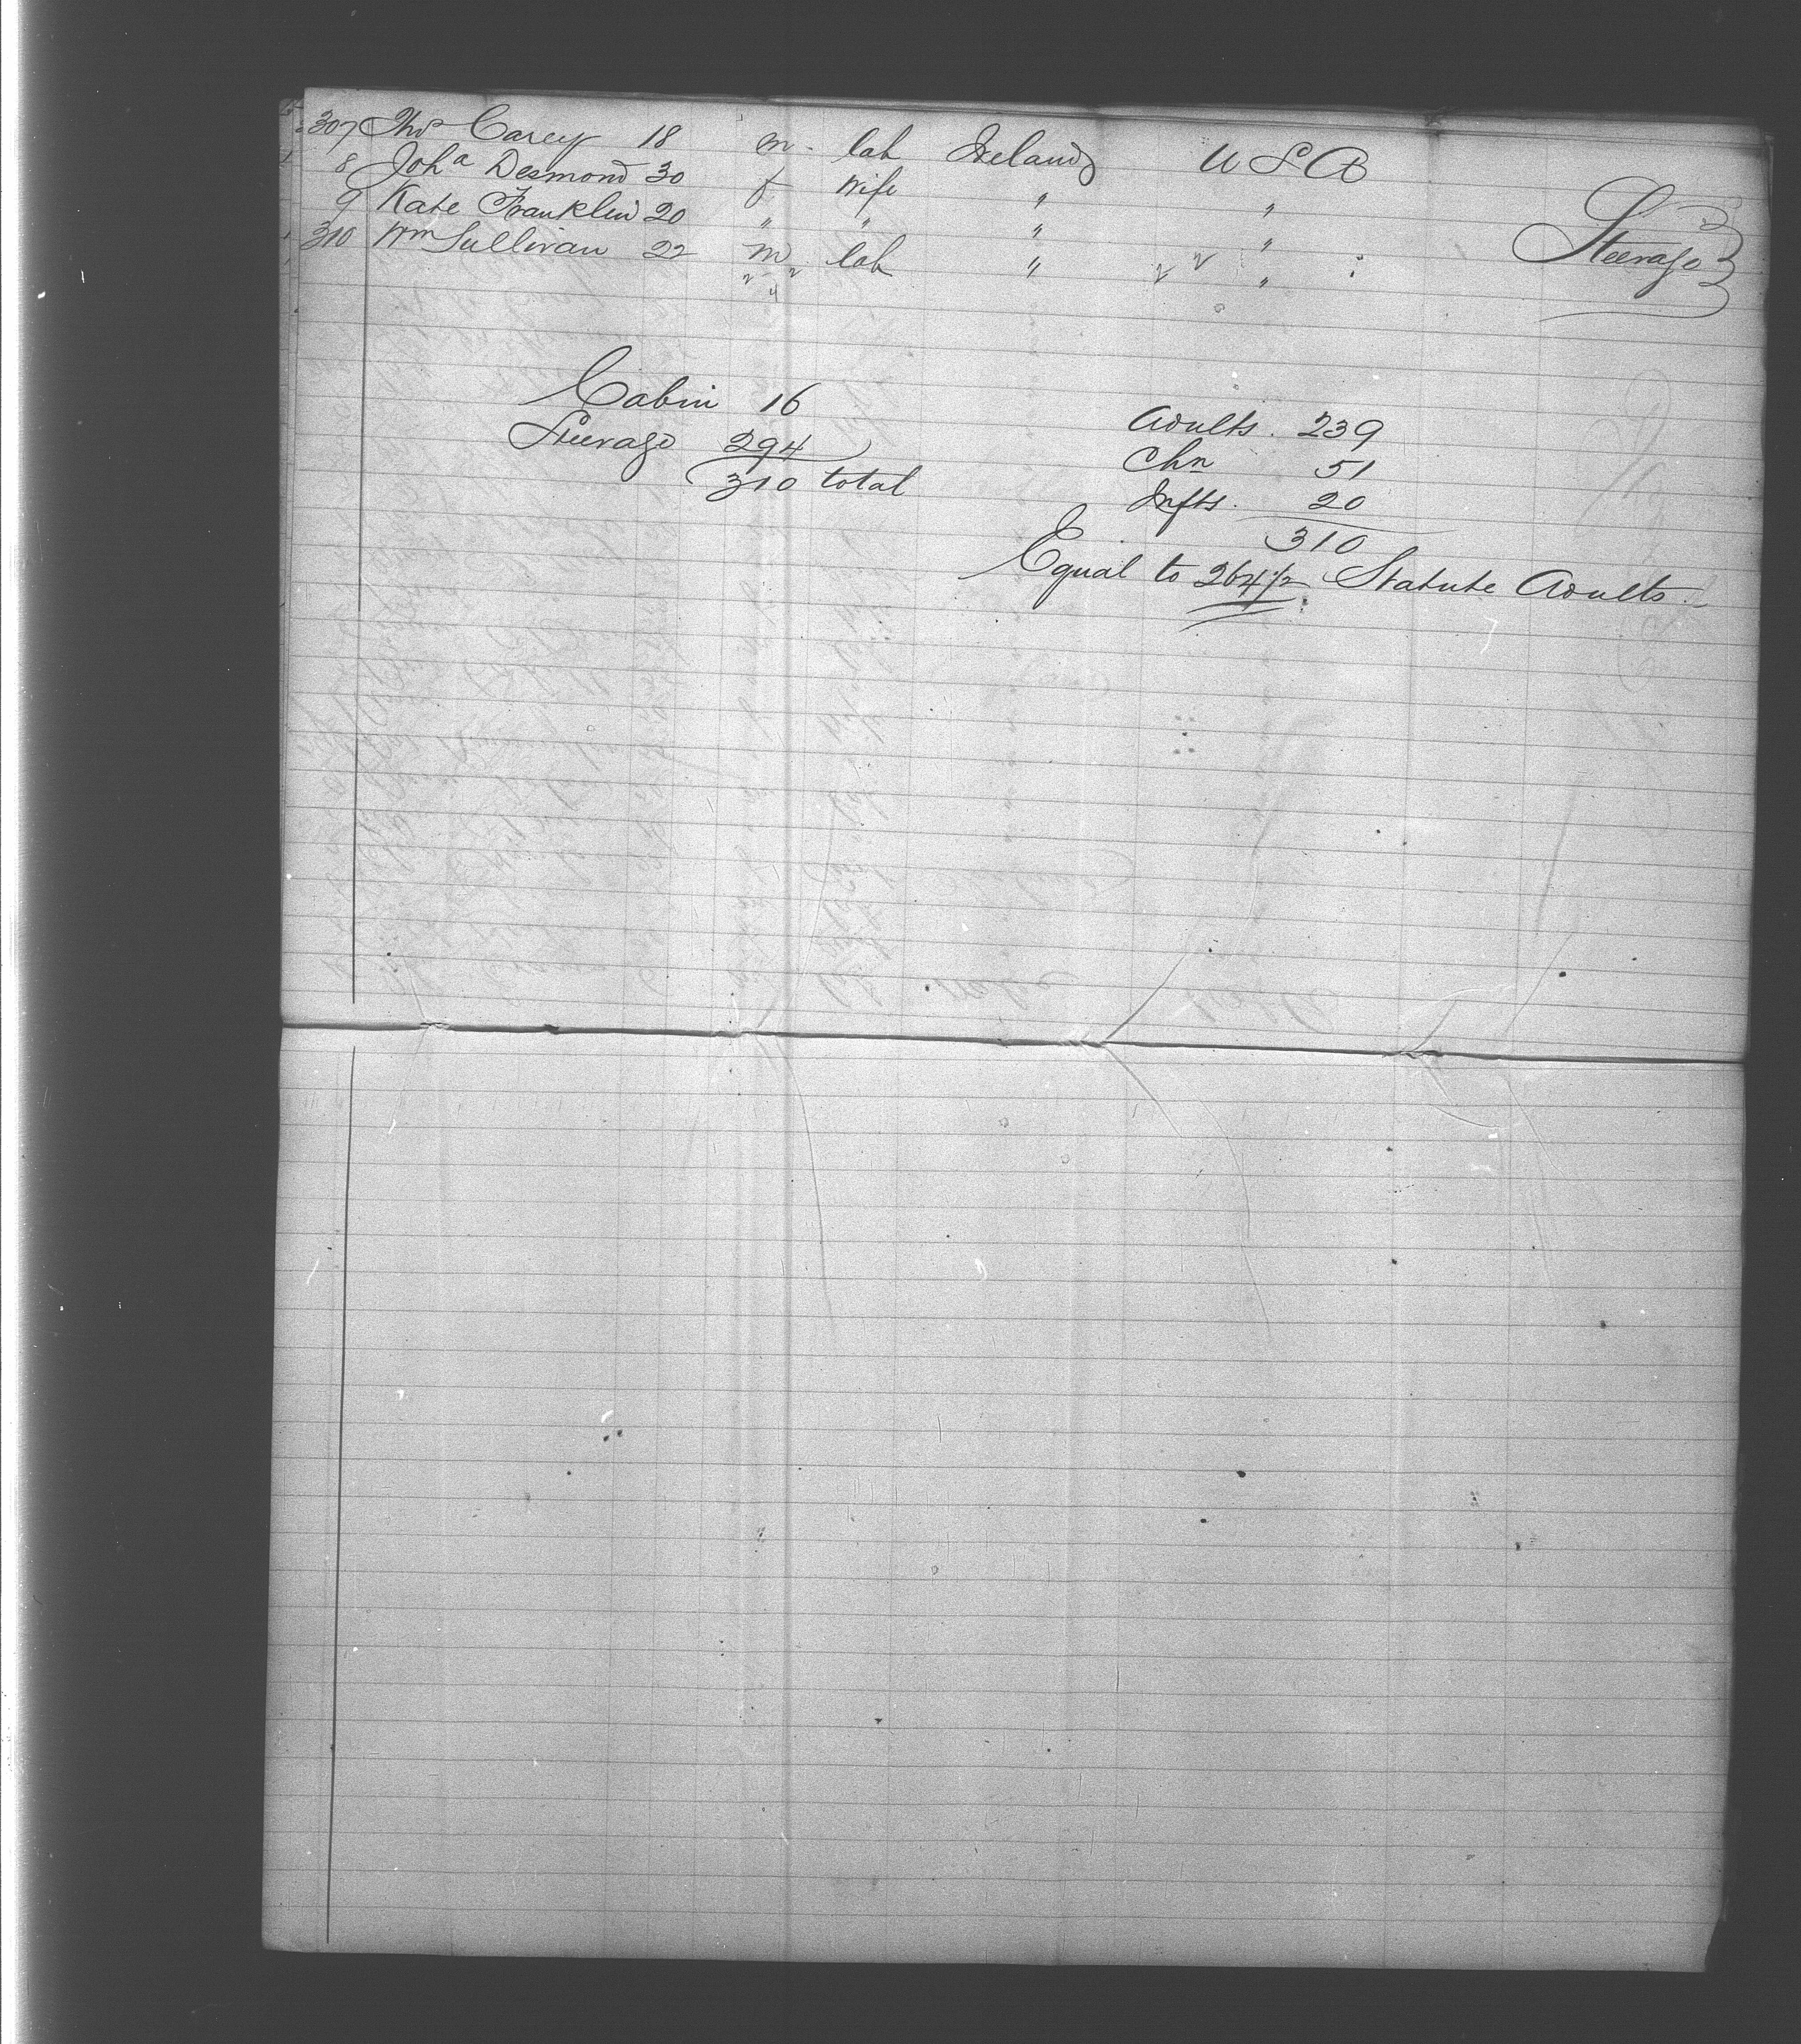 307 Thos Carey 18 m. lab Ireland USA
8 Joha Desmond 30 f wife " "
9 Kate Franklin 20 " " " "
310 Wm Sullivan 22 m lab " "
Steerage
Cabin 16
Steerage 294
310 total
Adults. 239
Chn 51
Infts. 20
310
Equal to 264½ Statute Adults